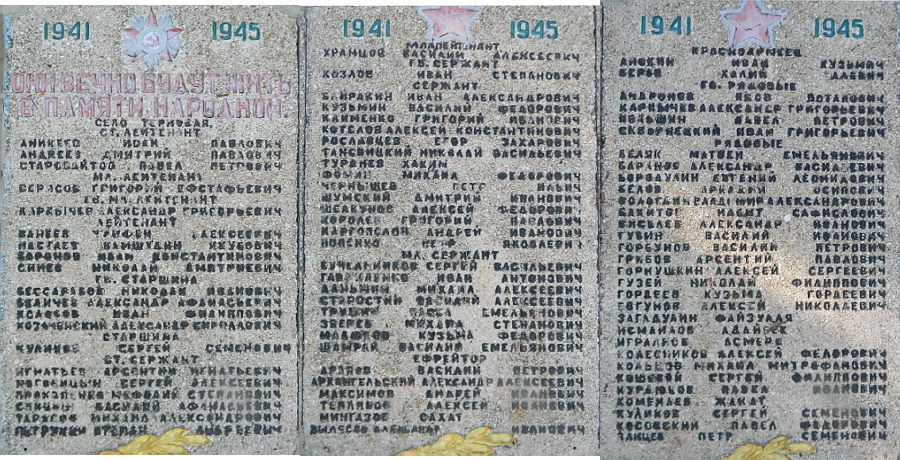 1941 1945
ОНИ ВЕЧНО БУДУТ ЖИТЬ
В ПАМЯТИ НАРОДНОЙ.
СЕЛО
СТ. ЛЕЙТЕНАНТ
АНИКЕЕВ ИВАН ПАВЛОВИЧ
АНДРЕЕВ ДМИТРИЙ ПАВЛОВИЧ
СТАРОВОЙТОВ ПАВЕЛ ПЕТРОВИЧ
МЛ. ЛЕЙТЕНАНТ
БОРИСОВ ГРИГОРИЙ ЕФСТАФЬЕВИЧ
ГВ. МЛ. ЛЕЙТЕНАНТ
КАРБЫЧЕВ АЛЕКСАНДР ГРИГОРЬЕВИЧ
ЛЕЙТЕНАНТ
ВАНЕЕВ АЛЕКСЕЕВИЧ
ЯКУБОВИЧ
ВОРОНОВ ИВАН КОНСТАНТИНОВИЧ
СИНЕВ НИКОЛАЙ ДМИТРИЕВИЧ
ГВ. СТАРШИНА
БЕССАРАБОВ НИКОЛАЙ ИВАНОВИЧ
ВЕЛИЧЕВ АЛЕКСАНДР АФАНАСЬЕВИЧ
КОЛОСОВ ИВАН ФИЛИППОВИЧ
КОЗАЧЕНСКИЙ АЛЕКСАНДР КИРИЛЛОВИЧ
СТАРШИНА
КУЛИКОВ СЕРГЕЙ СЕМЕНОВИЧ
СТ. СЕРЖАНТ
ИГНАТЬЕВ АРСЕНТИЙ ИГНАТЬЕВИЧ
СЕРГЕЙ АЛЕКСЕЕВИЧ
ПРОКОПЕНКО МЕФОДИЙ СТЕПАНОВИЧ
ВАСИЛИЙ АФАНАСЬЕВИЧ
ТАРАСОВ МИХАИЛ АЛЕКСАНДРОВИЧ
ПЕТРУНИН СТЕПАН АНДРЕЕВИЧ
1941 1945
МЛ. ЛЕЙТЕНАНТ
ХРАМЦОВ ВАСИЛИЙ АЛЕКСЕЕВИЧ
ГВ. СЕРЖАНТ
КОЗЛОВ ИВАН СТЕПАНОВИЧ
СЕРЖАНТ
ИВАН АЛЕКСАНДРОВИЧ
КУЗЬМИН ВАСИЛИЙ ФЕДОРОВИЧ
КЛИМЕНКО ГРИГОРИЙ ИВАНОВИЧ
КОТЕЛОВ АЛЕКСЕЙ КОНСТАНТИНОВИЧ
РОСЛАВЦЕВ ЕГОР ЗАХАРОВИЧ
ГАНЕВИЦКИЙ НИКОЛАЙ ВАСИЛЬЕВИЧ
ТУРАИЕВ ХАКИМ
ФОМИН МИХАИЛ ФЕДОРОВИЧ
ЧЕРНЫШЕВ ПЕТР ИЛЬИЧ
ШУМСКИЙ ДМИТРИЙ ИВАНОВИЧ
ШЕЛКУНОВ АЛЕКСЕЙ ФЕДОРОВИЧ
КОРОЛЕВ ГРИГОРИЙ ПАВЛОВИЧ
КАРГОПОЛОВ АНДРЕЙ ИВАНОВИЧ
ПОПЕНКО ПЕТР ЯКОВЛЕВИЧ
МЛ. СЕРЖАНТ
БУЧЕЛЬНИКОВ СЕРГЕЙ ВАСИЛЬЕВИЧ
ГАВРИЛЕНКО ИВАН АНТОНОВИЧ
ЛАНЬШИН МИХАИЛ АЛЕКСЕЕВИЧ
СТАРОСТИН ВАСИЛИЙ АЛЕКСЕЕВИЧ
ТРУШИН ПАВЕЛ ЕМЕЛЬЯНОВИЧ
ЗВЕРЕВ МИХАИЛ СТЕПАНОВИЧ
КУЗЬМА ФЕДОРОВИЧ
ШАМРАЙ ВАСИЛИЙ ЕМЕЛЬЯНОВИЧ
ЕФРЕЙТОР
АРАПОВ ВАСИЛИЙ ПЕТРОВИЧ
АРХАНГЕЛЬСКИЙ АЛЕКСАНДР АЛЕКСЕЕВИЧ
МАКСИМОВ АНДРЕЙ ИВАНОВИЧ
ТЕПЛЯКОВ АЛЕКСЕЙ ИВАНОВИЧ
МИНГАЗОВ САХАТ
ВЫЛЕГОВ АЛЕКСАНДР ИВАНОВИЧ
1941 1945
КРАСНОАРМЕЕЦ
АНОХИН ИВАН КУЗЬМИЧ
БЕРОВ ХАЛИЙ
ГВ. РЯДОВЫЕ
АНДРОНОВ ЯКОВ ПОТАПОВИЧ
КАРАБЫЧЕВ АЛЕКСАНДР ГРИГОРЬЕВИЧ
ПАВЕЛ ПЕТРОВИЧ
СКВОРНЕЦКИЙ ИВАН ГРИГОРЬЕВИЧ
РЯДОВЫЕ
БЕЛЯК МАТВЕЙ ЕМЕЛЬЯНОВИЧ
БАРАНОВ АЛЕКСАНДР ВАСИЛЬЕВИЧ
БОРОДУЛИН ЕВГЕНИЙ ЛЕОНИДОВИЧ
БЕЛОВ АРКАДИЙ ОСИПОВИЧ
ВОЛОГЖАНИН ВЛАДИМИР АЛЕКСАНДРОВИЧ
ВАХИТОВ НАБИТ САФИСЛОВИЧ
КИСЕЛЕВ АЛЕКСАНДР ИВАНОВИЧ
ГУБИН ВАСИЛИЙ ИВАНОВИЧ
ГОРБУНОВ ВАСИЛИЙ ПЕТРОВИЧ
ГРИБОВ АРСЕНТИЙ ПАВЛОВИЧ
ГОРНУШКИН АЛЕКСЕЙ СЕРГЕЕВИЧ
ГУЗЕЙ НИКОЛАЙ ФИЛИППОВИЧ
ГОРДЕЕВ КУЗЬМА ГОРДЕЕВИЧ
ЕВГУНОВ АЛЕКСЕЙ НИКОЛАЕВИЧ
ЗАГАДУЛИН ФАЙЗУЛЛА
ИСМАИЛОВ АДАЙБЕК
АСМЕРЕ
КОЛЕСНИКОВ АЛЕКСЕЙ ФЕДОРОВИЧ
МИХАИЛ МИТРОФАНОВИЧ
КОШЕВОЙ СЕРГЕЙ ФИЛИППОВИЧ
ПАВЕЛ ИВАНОВИЧ
КОМБИЛАЕВ ЖАКАТ
КУЛИКОВ СЕРГЕЙ СЕМЕНОВИЧ
КОСОВСКИЙ ПАВЕЛ ФЕДОРОВИЧ
ЗАЙЦЕВ ПЕТР СЕМЕНОВИЧ